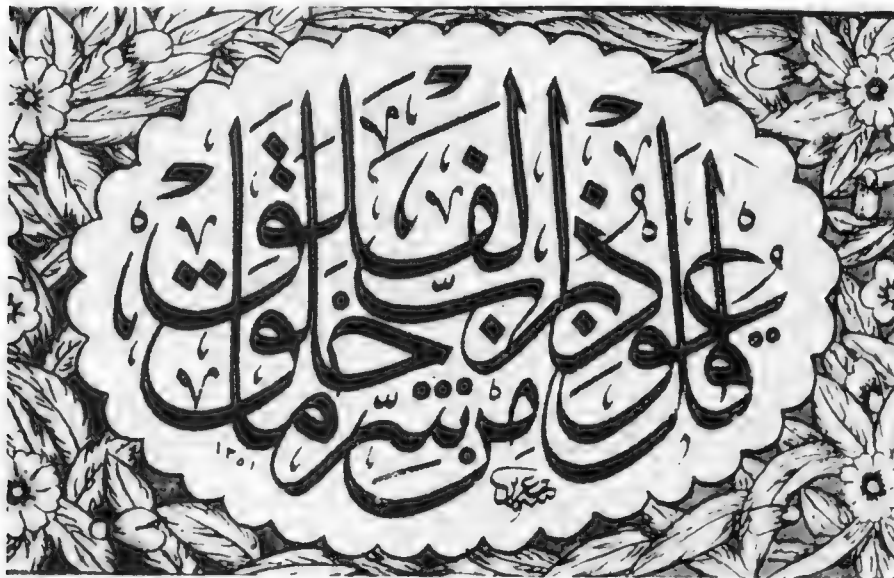 قل أعوذ برب الفلق
من شر ما خلق
١٣٥١